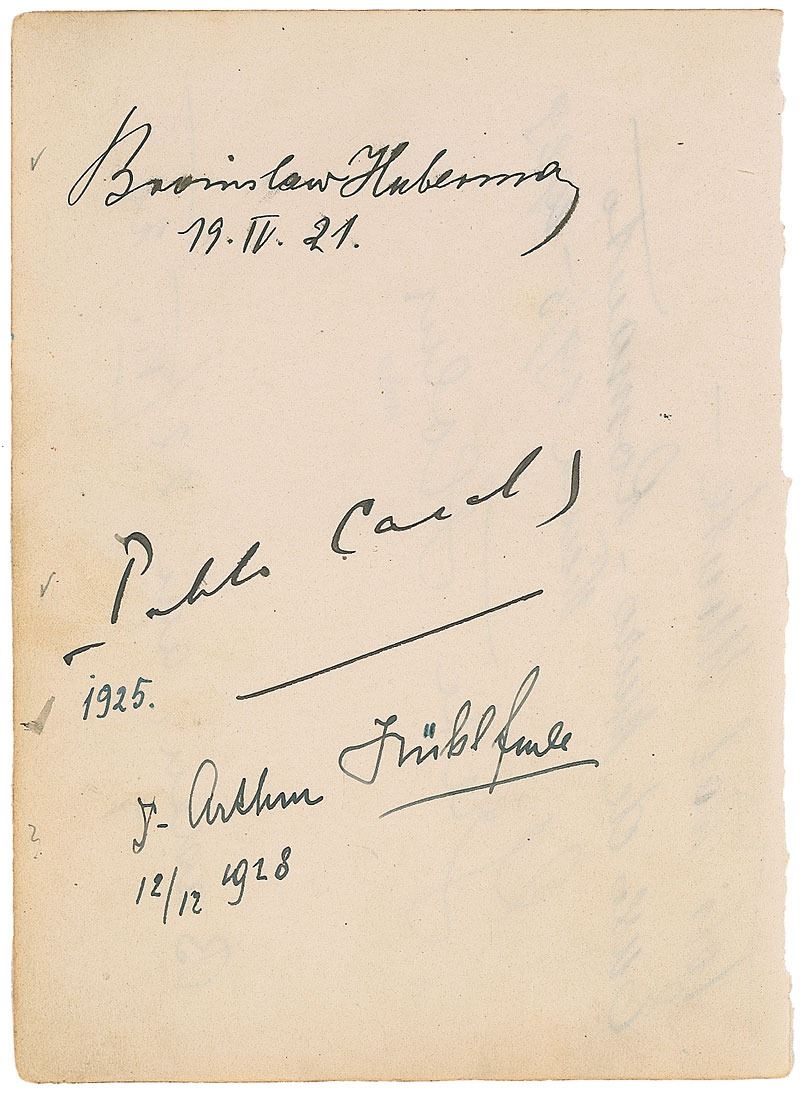 Bronislaw Huberman
19. IV. 21.
Pablo Casals
1925.
Arthur
12/12 1928